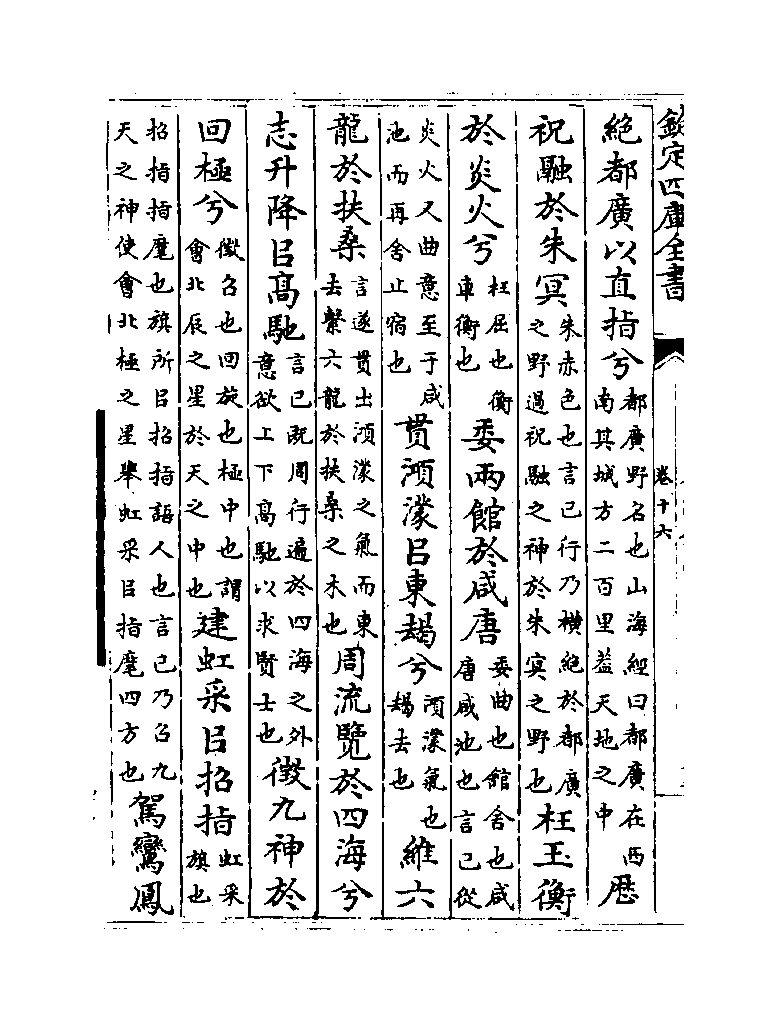 欽定四庫全書 卷十六
絶都廣以直指兮都廣野名也山海經曰都廣在西南其城方二百里葢天地之中歴
祝融於朱冥朱赤色也言已行乃橫絶於都廣之野過祝融之神於朱冥之野也枉玉衡
於炎火兮枉屈也衡車衡也委兩館於咸唐委曲也館舍也咸唐咸池也言已從
炎火又曲意至于咸池而再舍止宿也貫澒濛㠯東朅兮澒濛氣也朅去也維六
龍於扶桑言遂貫出澒濛之氣而東去繫六龍於扶桑之木也周流覽於四海兮
志升降㠯高馳言已既周行遍於四海之外意欲上下高馳以求賢士也徵九神於
回極兮徵召也回旋也極中也謂會北辰之星於天之中也建虹采㠯招指虹采旗也
招指指麾也旗所㠯招指語人也言已乃召九天之神使會北極之星舉虹采㠯指麾四方也駕鸞鳳